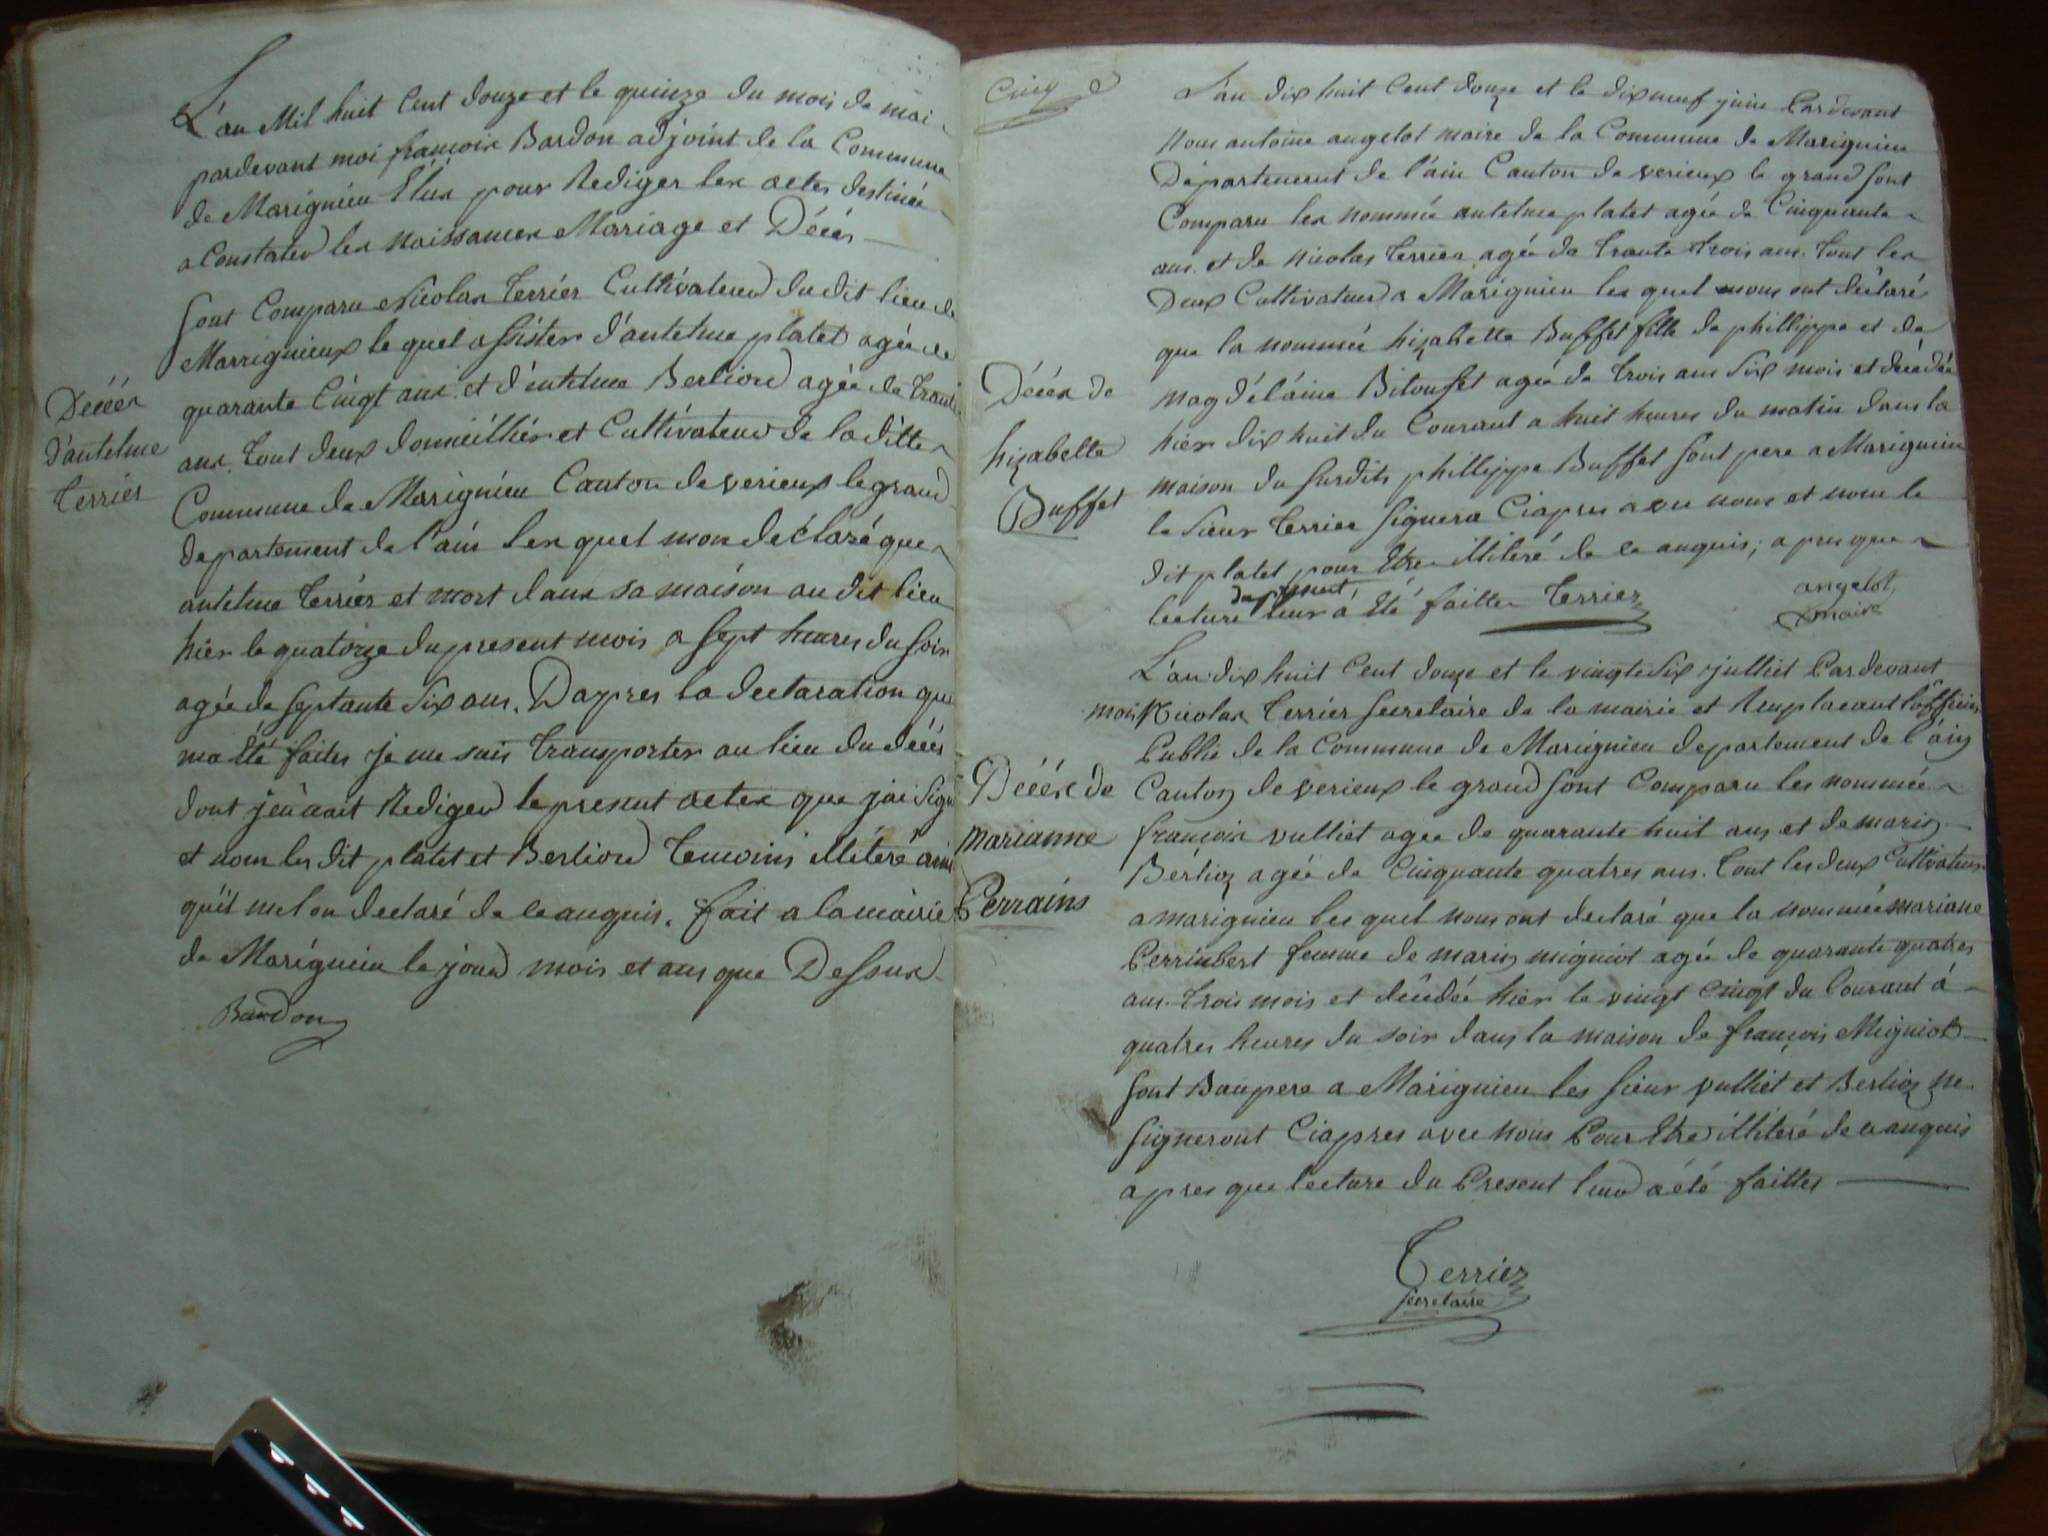 L'an Mil huit Cent douze et le quinze du mois de mai
pardevant moi françoix Bardon adjoint de la Commune
de Marignieu Élux pour Rediger lex actes destinée
a Constater lex naissancex Mariage et Décés
Sont Comparu Nicolax Terriér Cultivateur du dit lieu de
Marrignieux le quel assister d'antelme platet agée de
quarante Cingt anx et d'entelme Berliond agée de trante
anx tout deux domicilliér et Cultivateur de la ditte
Décéér
d'antelme
terriér
Commune de Marignieu Canton de verieux le grand
departement de l'ain lex quel mon déclaré que
antelme Terriér et mort danx sa maison au dit lieu
hier le quatorze du present mois a sept heures du soir
agée de septante six ans. Dapres la declaration que
ma été faites je me suis transporter au lieu du décés
dont jeu avait Rediger le present actex que jai signé
et nom les dit platet et Berliond temoins illiteré ainsi
qu'il mel on declaré de ce anquis. fait a la mairie
de Marignieu le jour mois et ans que Dessux
Bardon
Cinq
L'an dix huit Cent douze et le dixneuf juin Pardevant
Nous antoine angelot maire de la Commune de Marignieu
Département de l'ain Canton de verieux le grand sont
Comparu lex nommée antelme platet agée de Cinquante
ans et de nicolas terrier agée de trante trois ans. tout lex
Deux Cultivateur a Marignieu lex quel nous ont déclaré
que la nommée hizabette Buffet fille de phillippe et de
magdélaine Bitouset agée de trois ans six mois et décédée
hier dix huit du Courant a huit heures du matin dans la
maison du surdits phillippe Buffet sont pere a Marignieu
le sieur terrier signera Ciapres avec nous et nom le
dit platet pour Etre illiteré de ce anquis, a pres que
lecture du present leur a été faittes Terrier
angelot
maire
Décéx de
hizabette
Buffet
L'an dix huit Cent douze et le vingtesix julliet Pardevant
moi Nicolax Terrier secretaire de la mairie et Remplacant l'officier
Public de la Commune de Marignieu departement de l'ain
Canton de verieux le grand sont Comparu les nommée
françoix vulliet agee de quarante huit ans et de marin
Bérlioz agée de Cinquante quatres ans. tout les deux Cultivateur
a marignieu les quel nous ont declaré que la nommée mariane
Perrinbert femme de marin migniot agée de quarante quatres
ans trois mois et décédée hier le vingt cingt du Courant á
quatres heures du soir dans la maison de françois Migniot
sont Baupere a Marignieu les sieur vulliet et Berlioz ne
signeront Ciapres avec nous Pour Etre illiteré de ce anquis
apres que lecture du Present leur a été faittes
Décéx de
marianne
Perrains
Terrier
secretaire